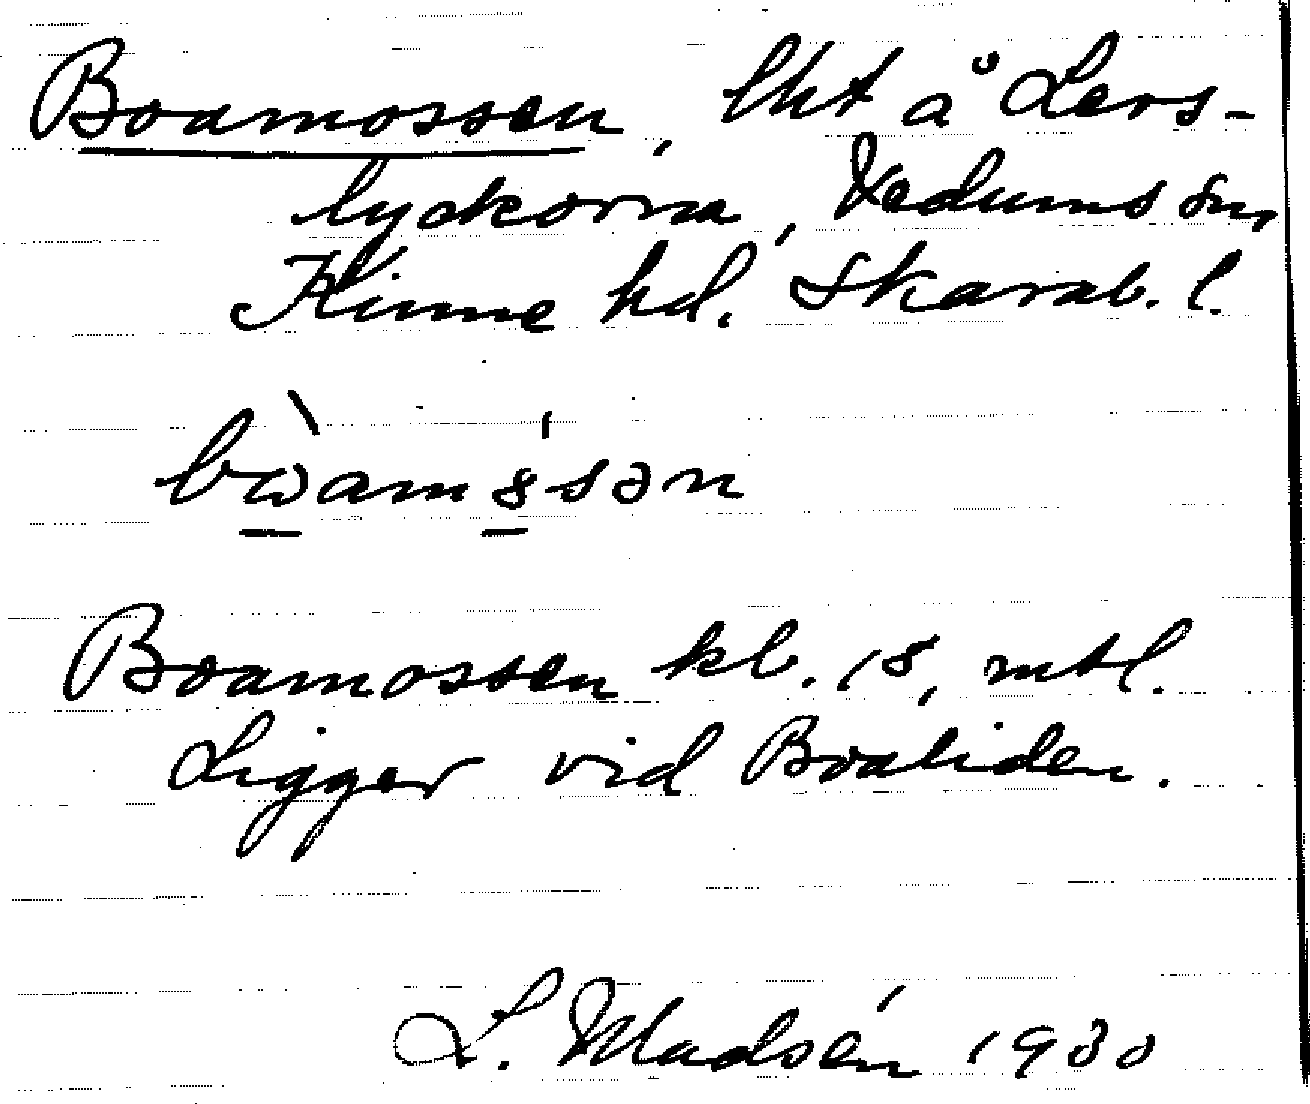 Boamossen, lht å Lers-
lyckorna, Vedums sn,
Kinne hd. Skarab. l.
bὼams̍sən
Boamossen kl. 18, mtl.
Ligger vid Boaliden.
L. Madsén 1930